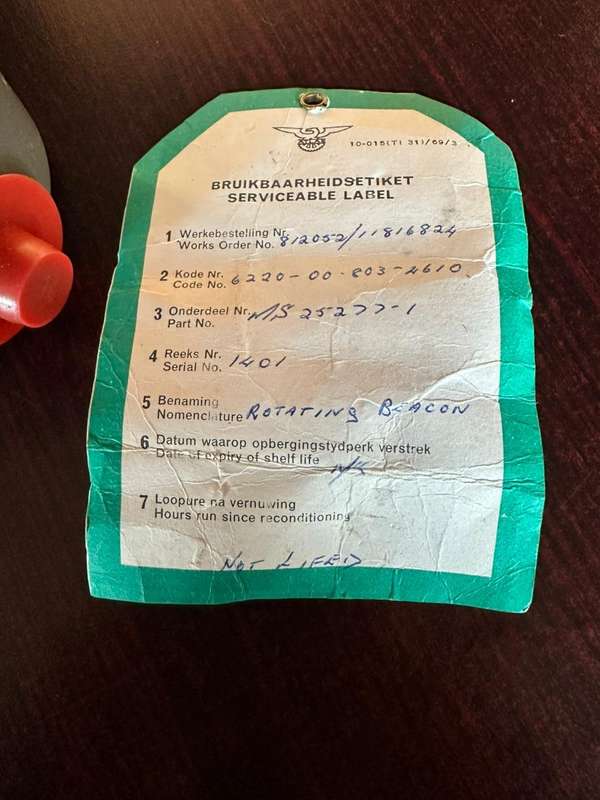 10-015(TI 31)/69/3
BRUIKBAARHEIDSETIKET
SERVICEABLE LABEL
1 Werkebestelling Nr.
Works Order No. 812052/11816824
2 Kode Nr.
Code No. 6220-00-803-4610
3 Onderdeel Nr.
Part No. MS 25277-1
4 Reeks Nr.
Serial No. 1401
5 Benaming
Nomenclature ROTATING BEACON
6 Datum waarop opbergingstydperk verstrek
Date of expiry of shelf life
7 Loopure na vernuwing
Hours run since reconditioning
NOT LIFED